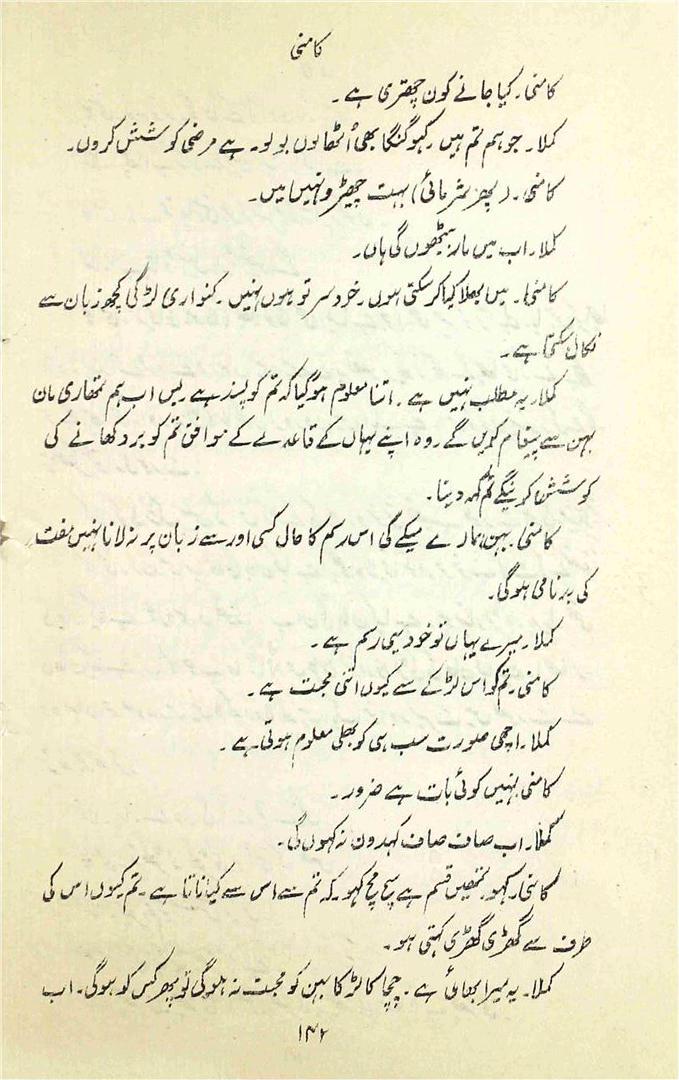 کامنی
کامنی۔ کیا جانے کون چھتری ہے۔
کملا۔ جو ہم تم ہیں۔ کہو گنگا بھی اُٹھالوں بولو۔ ہے مرضی کوشش کروں۔
کامنی۔ (پھر شرمائی) بہت چھیڑو نہیں ہیں۔
کملا۔ اب میں مار بیٹھوں گی ہاں۔
کامنی۔ میں بھلا کیا کرسکتی ہوں۔ خود سر تو ہوں نہیں۔ کنواری لڑکی کچھ زبان سے
نکال سکتی ہے۔
کملا۔ یہ مطلب نہیں ہے۔ اتنا معلوم ہوگیا کہ تم کو پسند ہے بس اب ہم تمھاری ماں
بہن سے پیغام کریں گے۔ وہ اپنے یہاں کے قاعدے کے موافق تم کو بر دکھانے کی
کوشش کرینگے تم کہہ دینا۔
کامنی۔ بہن ہمارے میکے کی اس رسم کا حال کسی اور سے زبان پر نہ لانا نہیں مفت
کی بدنامی ہوگی۔
کملا۔ میرے یہاں تو خود یہی رسم ہے۔
کامنی۔ تم کو اس لڑکے سے کیوں اتنی محبت ہے۔
کملا۔ اچھی صورت سب ہی کو بھلی معلوم ہوتی ہے۔
کامنی نہیں کوئی بات ہے ضرور۔
کملا۔ اب صاف صاف کہدوں نہ کہوں گی۔
کامنی۔ کہو تمھیں قسم ہے سچ مچ کہو۔ کہ تم سے اس سے کیا ناتا ہے۔ تم کیوں اس کی
طرف سے گھڑی گھڑی کہتی ہو۔
کملا۔ یہ میرا بھائی ہے۔ چچا کا لڑکا بہن کو محبت نہ ہوگی تو پھر کس کو ہوگی۔ اب
۱۴۲